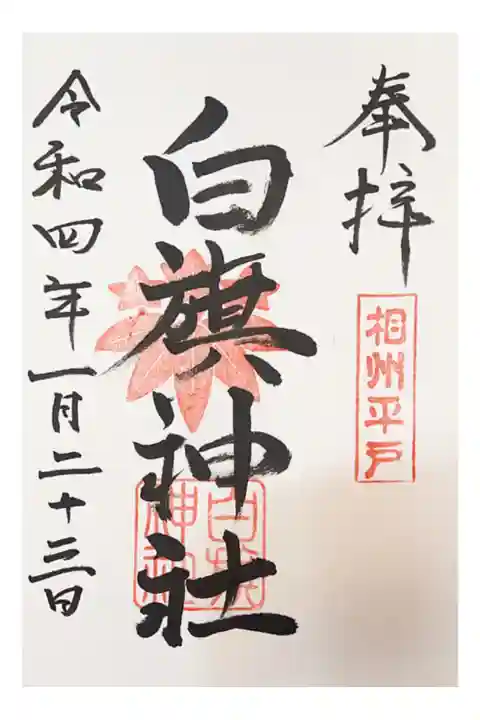 奉拝
相州平戸
白旗神社
白旗神社
令和四年一月二十三日